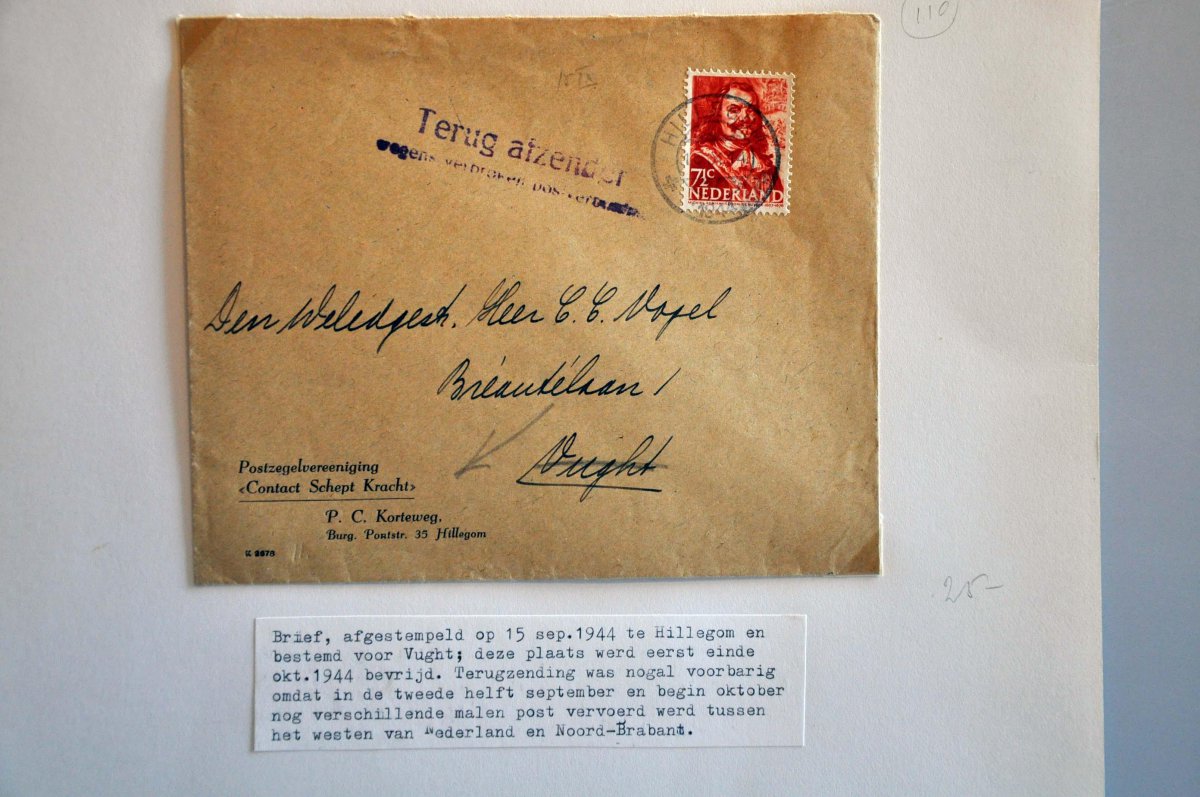 110
Terug afzender
wegens verbroken postverbinding
HI
7½c
NEDERLAND
Den Weledgestr. Heer C. C. Vogel
Bréautélaan 1
Vught
Postzegelvereeniging
«Contact Schept Kracht»
P. C. Korteweg,
Burg. Pontstr. 35 Hillegom
K 2678
25-
Brief, afgestempeld op 15 sep.1944 te Hillegom en
bestemd voor Vught; deze plaats werd eerst einde
okt.1944 bevrijd. Terugzending was nogal voorbarig
omdat in de tweede helft september en begin oktober
nog verschillende malen post vervoerd werd tussen
het westen van Nederland en Noord-Brabant.